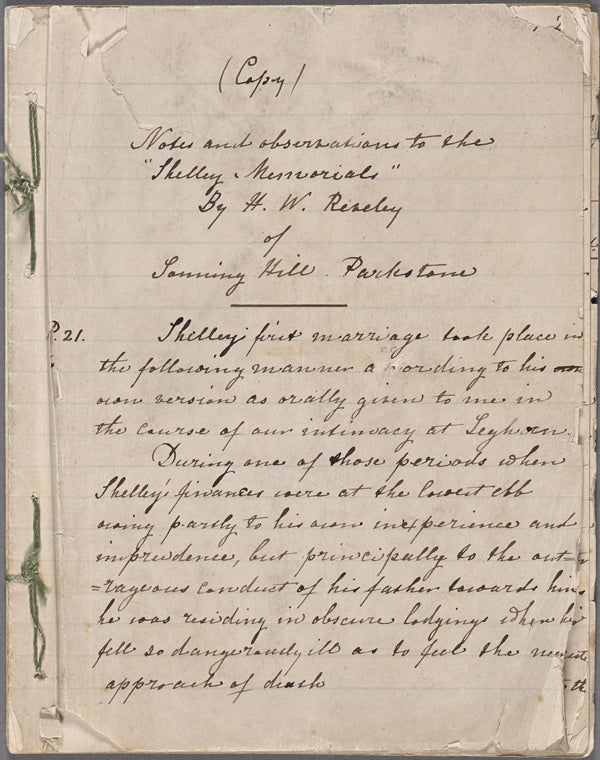 (Copy)
Notes and observations to the
"Shelley Memorials"
By H. W. Reveley
of
Sonning Hill. Parkstone
P. 21. Shelley's first marriage took place in
the following manner according to his
own version as orally given to me in
the course of our intimacy at Leghorn.
During one of those periods when
Shelley's finances were at the lowest ebb
owing partly to his own inexperience and
imprudence, but principally to the out=
=rageous conduct of his father towards him,
he was residing in obscure lodgings when he
fell so dangerously ill as to feel the
approach of death